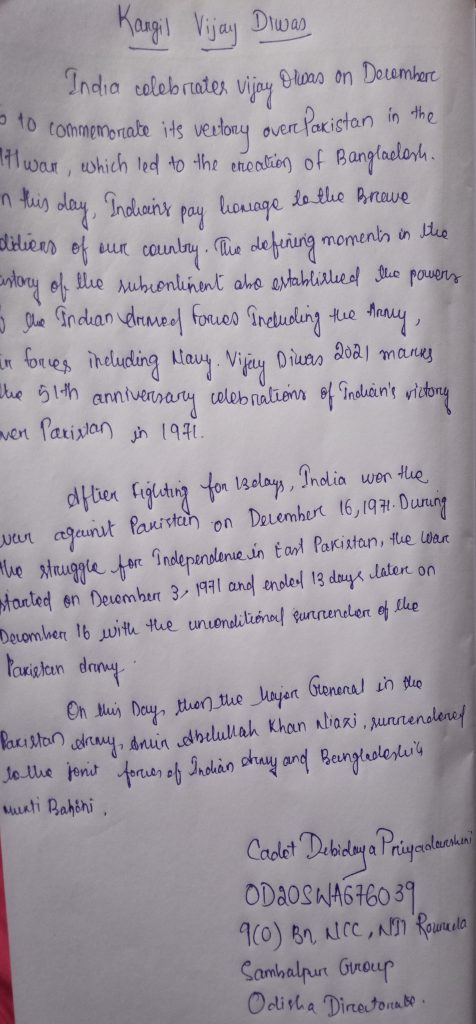 Kargil Vijay Diwas
India celebrates vijay Diwas on December
to commemorate its vectory over Pakistan in the
war, which led to the creation of Bangladesh.
this day, Indians pay homage to the Brave
of our country. The defining moments in the
of the subcontinent also established the powers
the Indian Armed forces Including the Army,
forces including Navy. Vijay Diwas 2021 marks
the 51th anniversary celebrations of Indian's victory
Pakistan in 1971.
After Fighting for 13 days, India won the
war against Pakistan on December 16, 1971. During
the struggle for Independence in East Pakistan, the war
started on December 3, 1971 and ended 13 days later on
December 16 with the unconditional surrender of the
Pakistan Army.
On this Day, then the Major General in the
Pakistan Army, Amir Abdullah Khan Niazi, surrendered
to the joint forces of Indian Army and Bangladeshi
Mukti Bahini.
Cadet Debidaya Priyadarsheni
OD20SWA676039
9(O) Bn NCC, NIT
Sambalpur Group
Odisha Directorate.